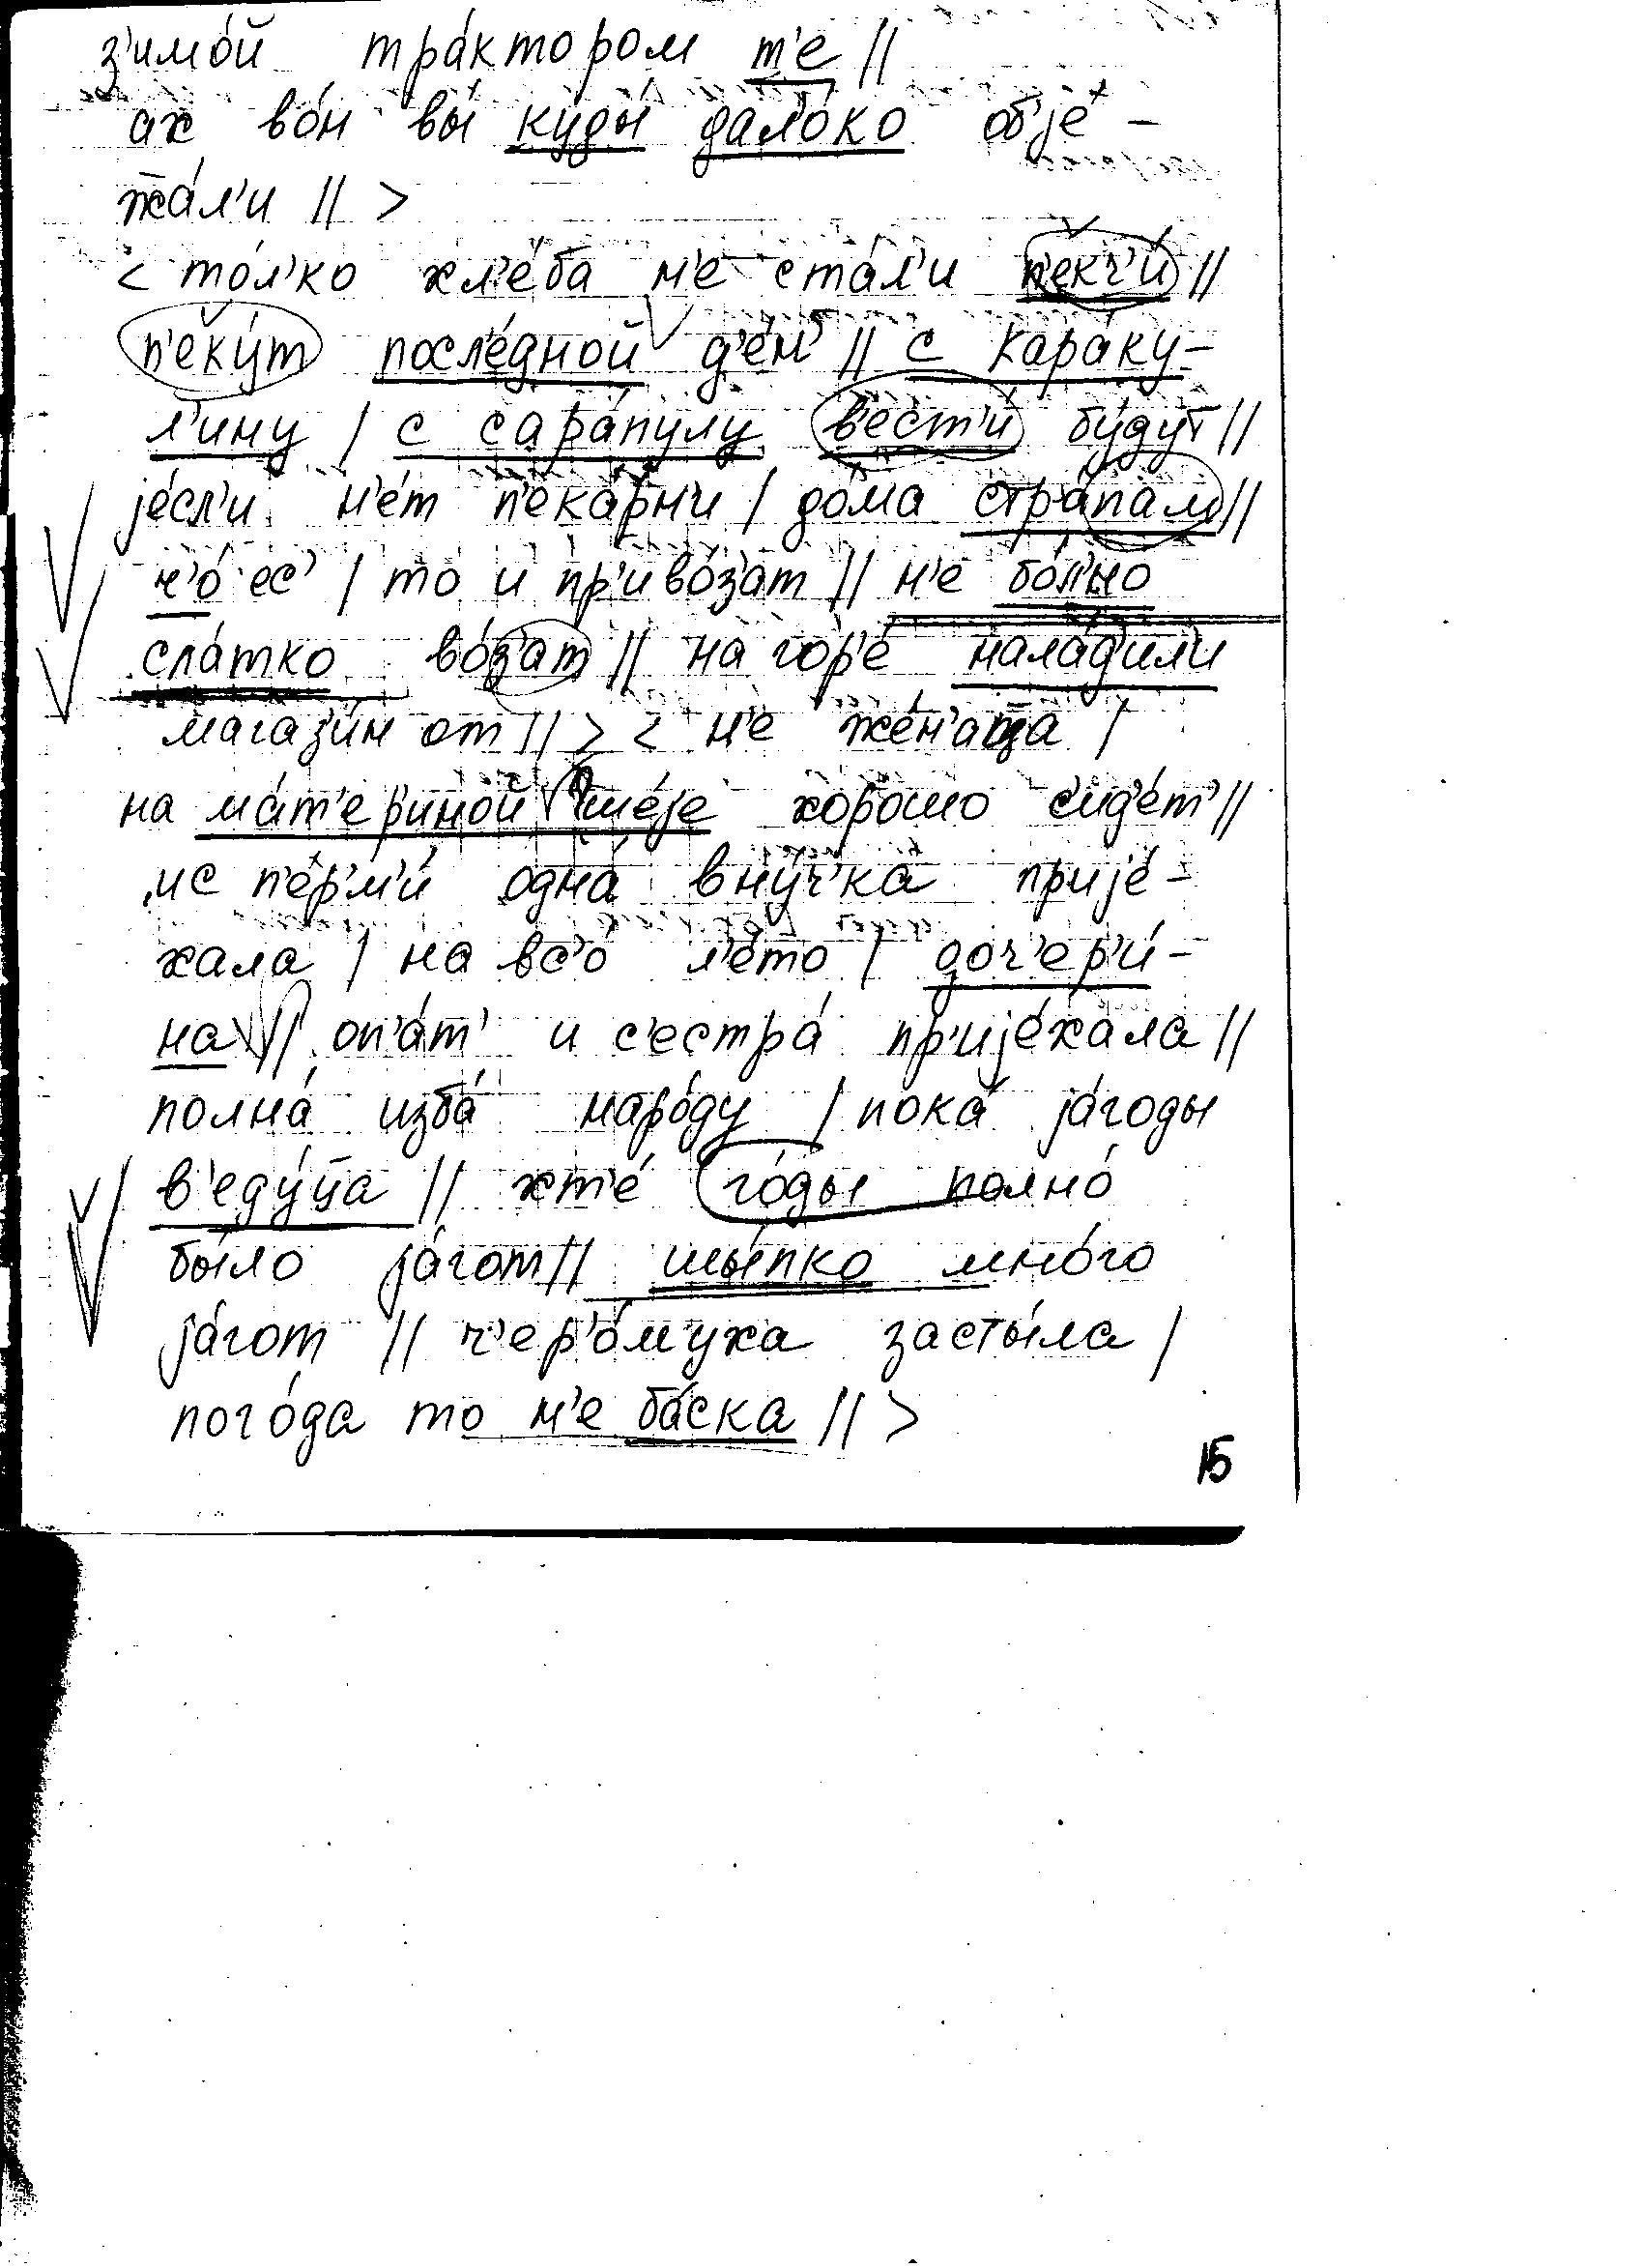 з'имо́й тра́ктором т'е //
ах во́н вы́ куды́ дало́ко обје́ -
жа́л'и // >
< то́л'ко хл'е́ба н'е ста́л'и п'екч'и́ //
п'еку́т посл'е́дной д'е́н' // с кара́ку-
л'ину / с сара́пулу в'ест'и́ бу́дут //
је́сл'и н'е́т п'ека́рни / до́ма стра́пам //
ч'о́ ес' / то и пр'иво́з'ат // н'е бо́л'но
сла́тко во́з'ат // на гор'е́ нала́д'или
магаз'и́н от // > < н'е же́н'аца /
на ма́т'ер'иной ше́је хорошо с'ид'е́т' //
ис п'е́рм'и́ одна́ вну́ч'ка прије́ -
хала / на вс'о́ л'е́то / доч'ер'и́ -
на // оп'а́т' и с'естра́ пр'ије́хала //
полна́ изба́ наро́ду / пока́ ја́годы
в'еду́ца // хт'е́ го́ды полно́
бы́ло ја́гот // шы́пко мно́го
ја́гот // ч'ер'о́муха засты́ла /
пого́да то н'е ба́ска // >
15